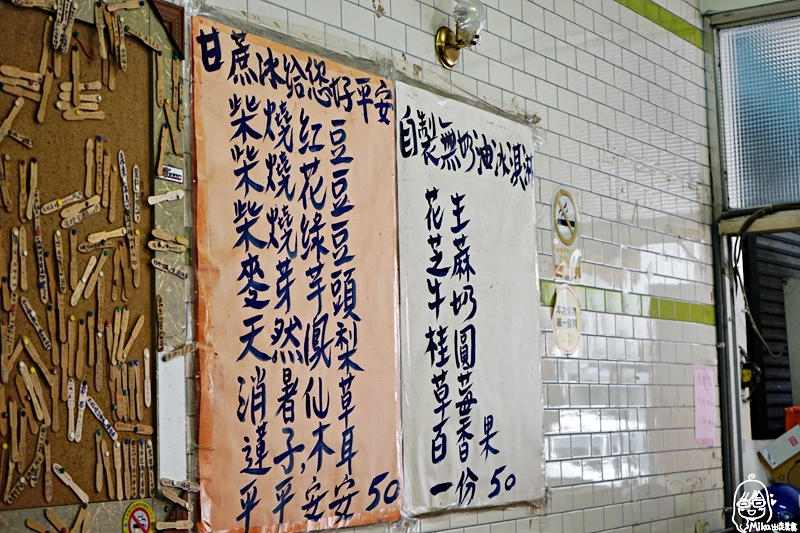 甘蔗冰給您好平安
柴燒紅豆
柴燒花豆
柴燒綠豆
麥芽芋頭
天然鳳梨
消暑仙草
蓮子,木耳
平平安安50
自製無奶油冰淇淋
花生
芝蔴
牛奶
桂圓
草莓
百香果
一份50